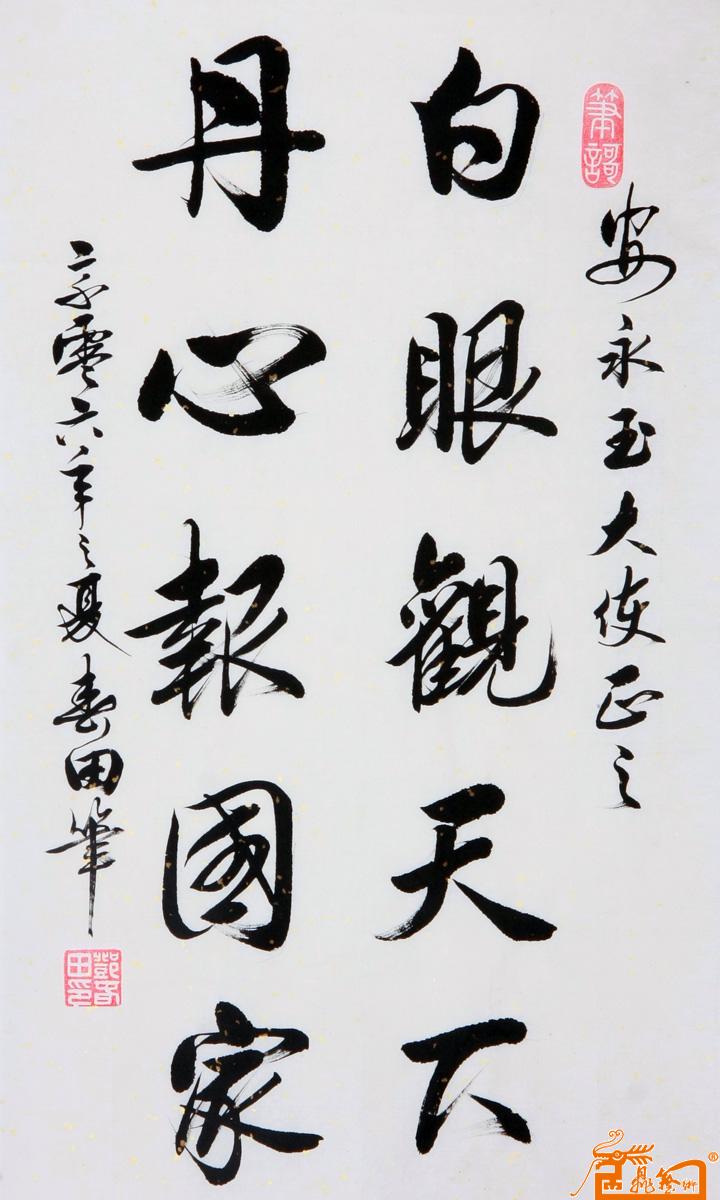 安永玉大使正之
白眼觀天下
丹心報國家
二零零六年之夏春田筆